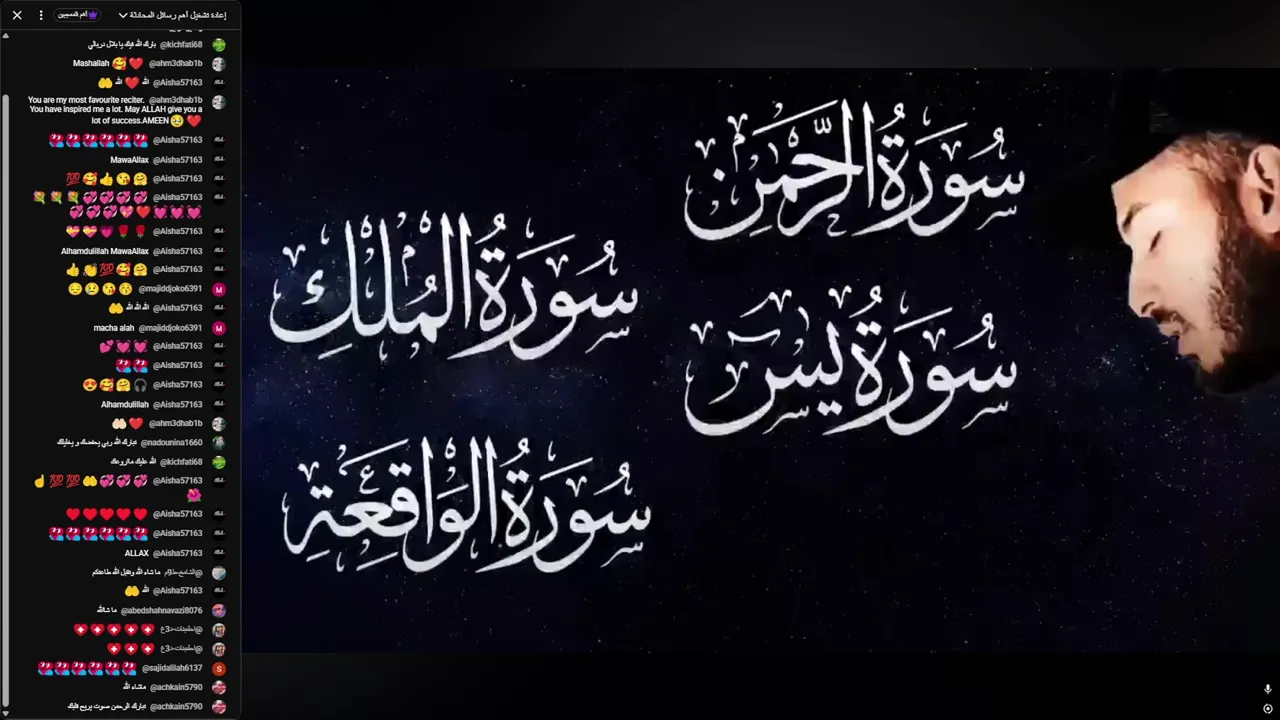 إعادة تشغيل أهم رسائل المحادثة
أهم المعجبين
@kichfati68
@ahm3dhab1b Mashallah 🥰❤️
@Aisha57163 الله ❤️ الله 🤲
@ahm3dhab1b You are my most favourite reciter.
You have inspired me a lot. May ALLAH give you a
lot of success.AMEEN 🥹 ❤️
@Aisha57163
@Aisha57163 MawaAllax
@Aisha57163
@Aisha57163
@Aisha57163
@Aisha57163 Alhamdulillah MawaAllax
@Aisha57163
@majiddjoko6391
@Aisha57163 الله الله الله 🤲
@majiddjoko6391 macha alah
@Aisha57163
@Aisha57163
@Aisha57163
@Aisha57163 Alhamdulillah
@ahm3dhab1b
@nadounina1660 تبارك الله ربي يحفضك و يخليك
@kichfati68 الله عليك ماروعك
@Aisha57163
@Aisha57163
@Aisha57163
@Aisha57163 ALLAX
ما شاء الله وتقبل الله طاعتكم
@Aisha57163 الله 🤲
@abedshahnavazi8076 ما شاالله
@sajidalilah6137
@achkain5790 ماشاء الله
@achkain5790 تبارك الرحمن صوت يريح قلبك
سُورَةُ الرَّحْمٰن
سُورَةُ المُلْكِ
سُورَةُ يس
سُورَةُ الوَاقِعَةِ